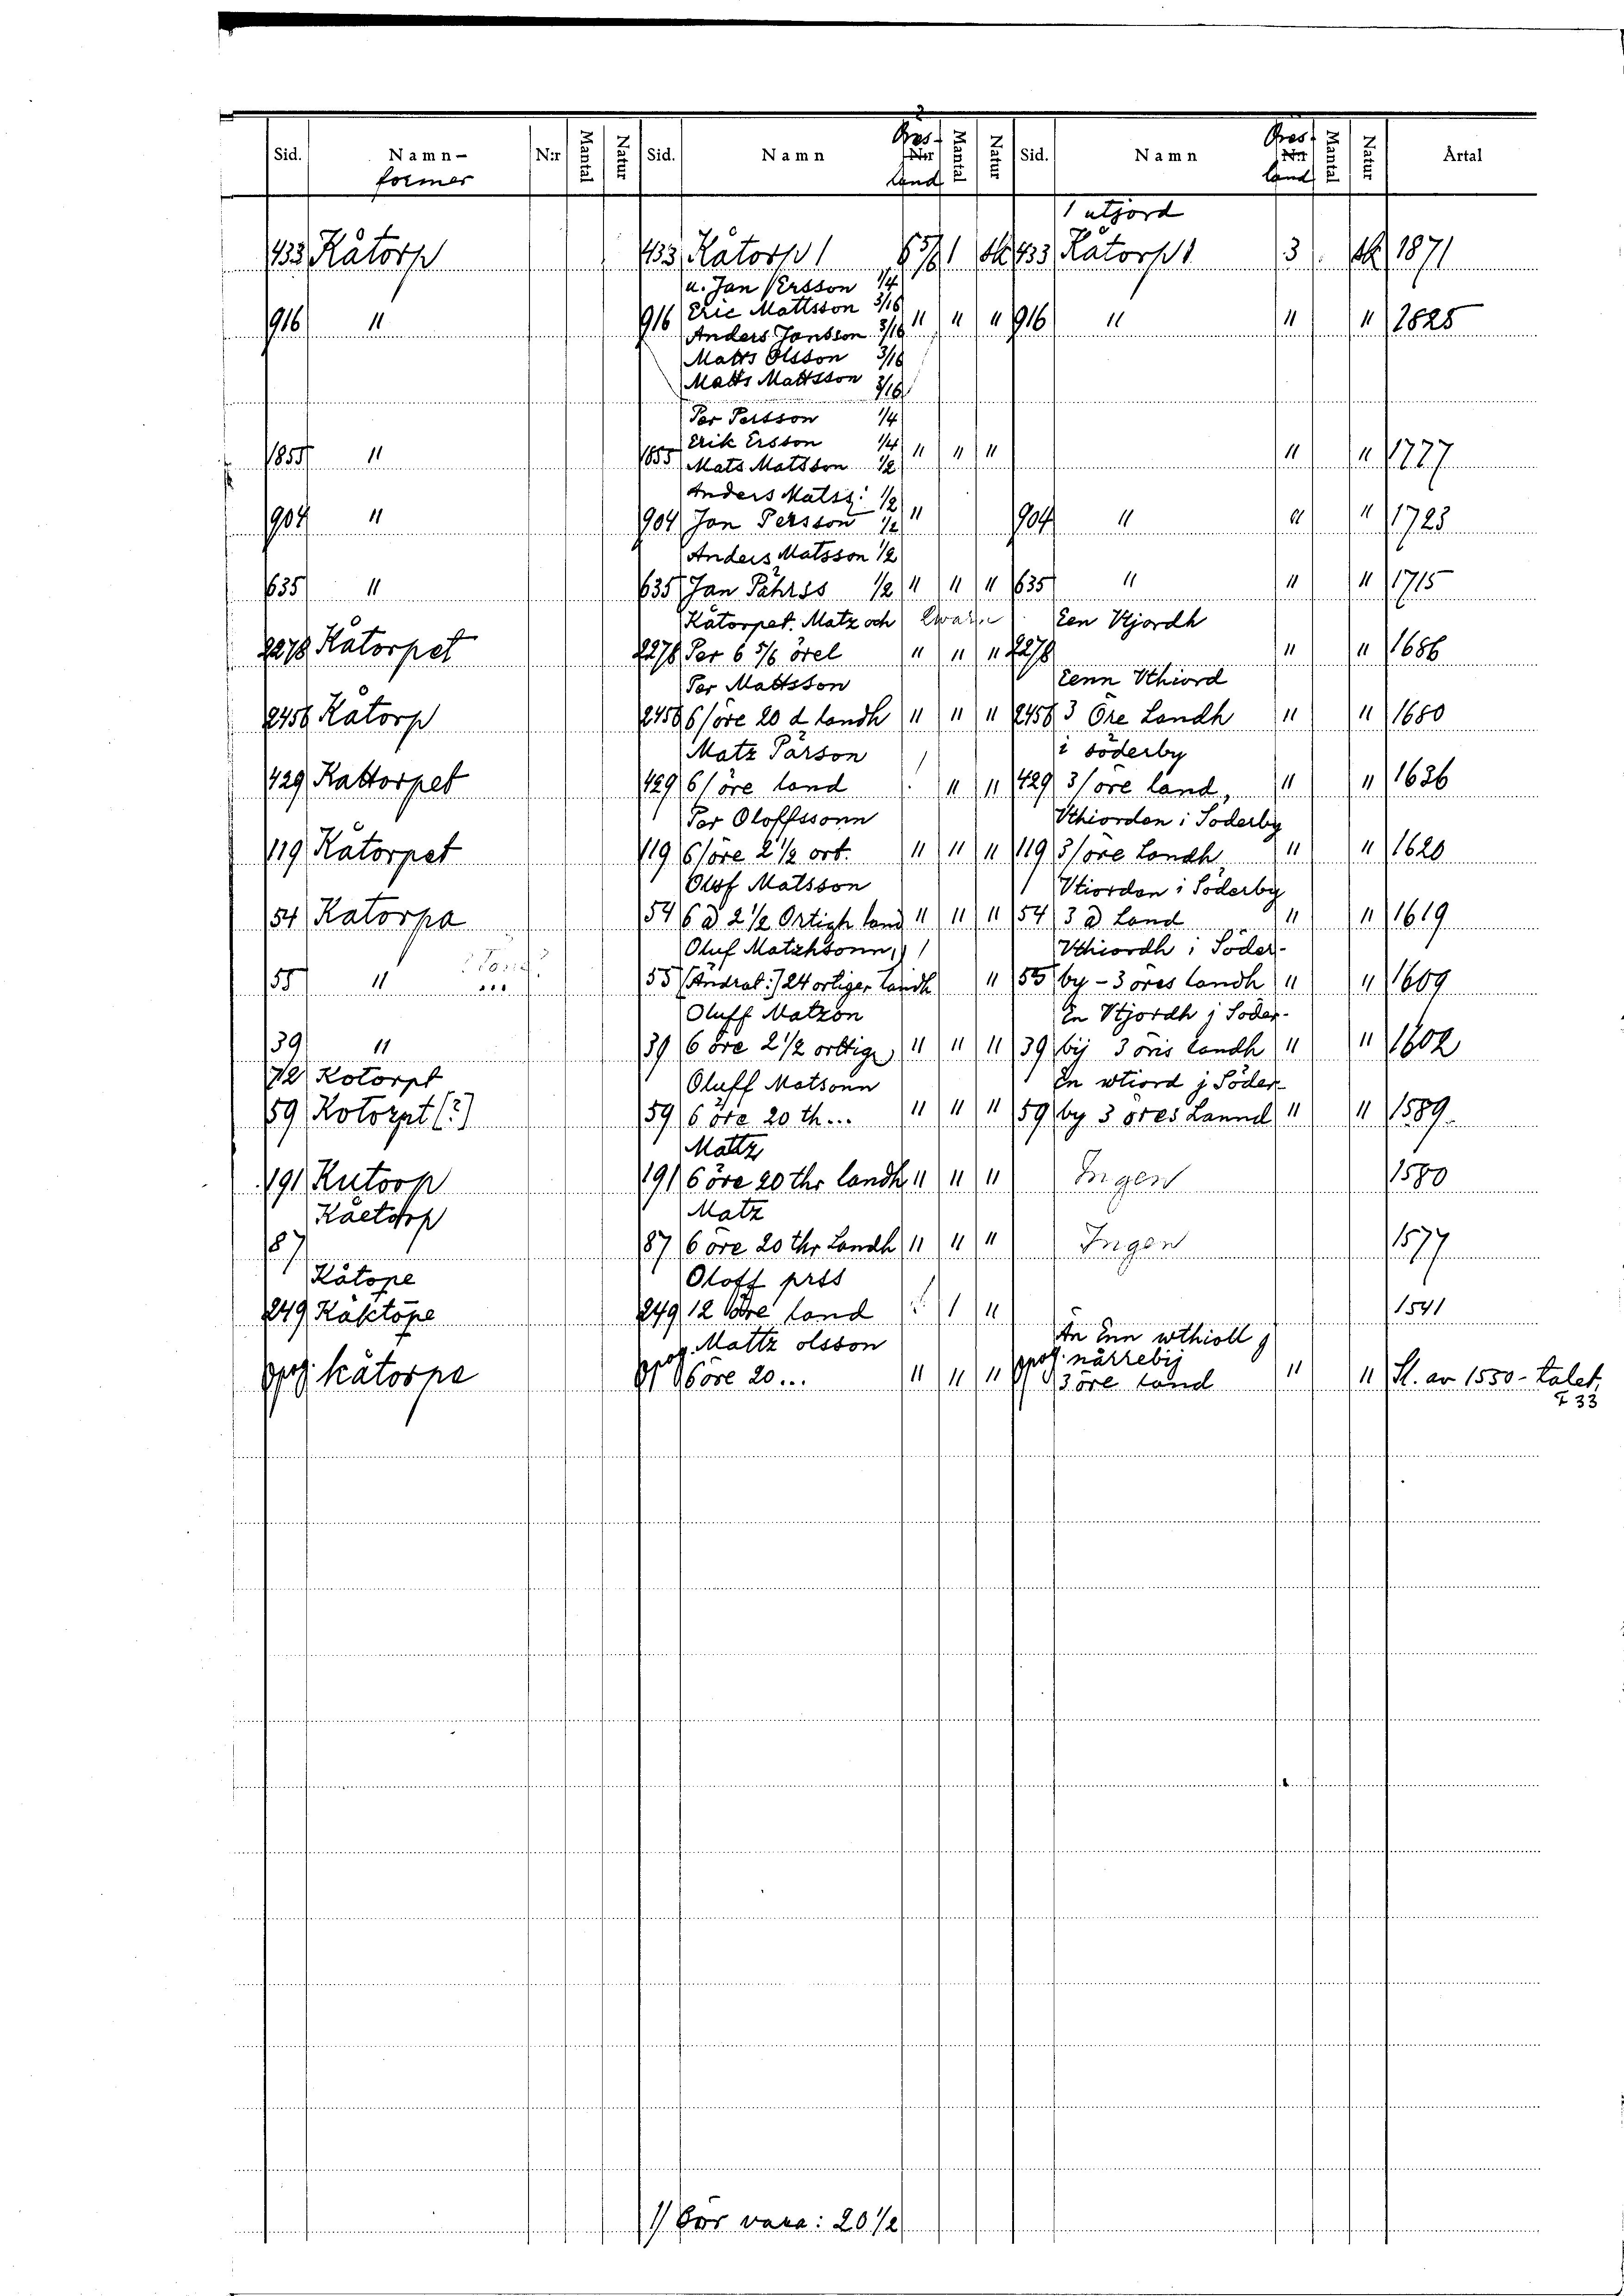 2
Sid. Namn- N:r Mantal Natur Sid. Namn Öres- N:r Mantal Natur Sid. Namn Öres- N:r Mantal Natur Årtal
former land land
1 utjord
433 Kåtorp 433 Kåtorp 1 6 5/6 1 sk 433 Kåtorp 1 3 sk 1871
a. Jan Persson 1/4
Eric Mattsson 3/16
916 " 916 " " " 916 " " " 1825
Anders Jansson 3/16
Matts Olsson 3/16
Matts Mattsson 3/16
Per Persson 1/4
Erik Ersson 1/4
1855 " 1855 Mats Matsson 1/2 " " " " " 1777
Anders Matss: 1/2
904 " 904 Jan Persson 1/2 " 904 " " " 1723
Anders Matsson 1/2
635 " 635 Jan Pährss 1/2 " " " 635 " " " 1715
Kåtorpet. Matz och Een Vtjordh
2278 Kåtorpet 2278 Per 6 5/6 örel " " " 2278 " " 1686
Per Mattsson Eenn Vthiord
2456 Kåtorp 2456 6/öre 20 d landh " " " 2456 3 Öre Landh " " 1680
Matz Pärson i söderby
429 Kattorpet 429 6/öre land " " 429 3/öre land, " " 1636
Per Oloffssonn Vthiorden i Söderby
119 Kåtorpet 119 6/öre 2 1/2 ort. " " " 119 3/öre Landh " " 1620
Olof Matsson Vtiorden i Söderby
54 Katorpa 54 6 ö 2 1/2 Örtigh land " " " 54 3 ö Land " " 1619
Oluf Matzhsonn, 1) Vthiordh i Söder-
55 " ... 55 [Ändrat:] 24 ortiger landh " 55 by - 3 öres landh " " 1609
Oluff Matzon En Vtjordh j Söder-
39 " 39 6 öre 2 1/2 orttige " " " 39 bij 3 öris landh " " 1602
72 Kotorpt Oluff Matsonn En wtiord j Söder-
59 Kotorpt (?) 59 6 öre 20 th... " " " 59 by 3 öres Lannd " " 1589
Mattz
191 Kutorp 191 6 öre 20 thr landh " " " Ingen 1580
Kåetorp Matz
87 87 6 öre 20 thr Landh " " " Ingen 1577
Kåtope Oloff prss
249 Kåktöpe 249 12 öre land 1 " 1541
Mattz olsson Än Enn wthioll j
opag. kåtorpa opag. 6 öre 20... " " " opag. närrebij 3 öre land " " Sl. av 1550-talet,
F 33
1) Bör vara: 20 1/2